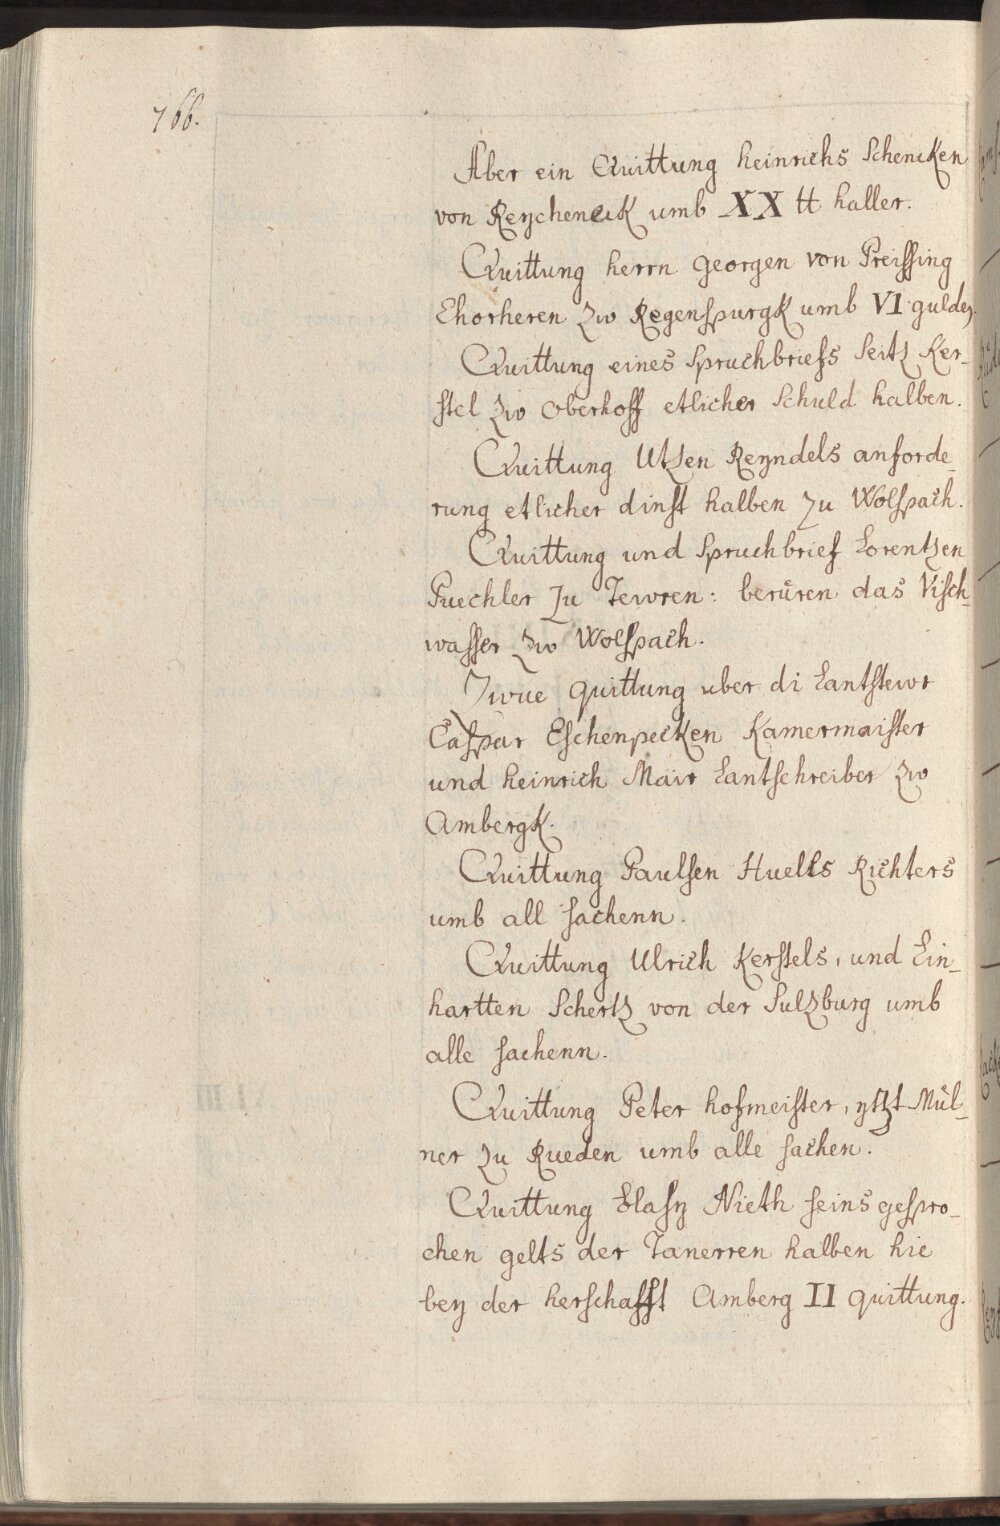 766.
Aber ein Quittung heinrichs Schencken
von Reycheneck umb XX tt haller.
Quittung herrn georgen von Preissing
Chorheren zw Regenspurgk umb VI gulden.
Quittung eines Spruchbriefs Seitz Ker-
stel zw Oberhoff etlicher Schuld halben.
Quittung Utzen Reyndels anforde-
rung etlicher dinst halben zu Wolfpach.
Quittung und Spruchbrief Lorentzen
Puechler zu Tewren: berüren das Visch-
wasser zw Wolfpach.
Zwue quittung uber di Lantstewr
Caspar Eschenpecken Kamermaister
und heinrich Mair Lantschreiber zw
Ambergk.
Quittung Paulsen Huells Richters
umb all sachenn.
Quittung Ulrich Kerstels, und Lin-
hartten Schertz von der Sulzburg umb
alle sachenn.
Quittung Peter hofmeister, ytzt Mül-
ner zu Rueden umb alle sachen.
Quittung Elasy Nieth seins gespro-
chen gelts der Tanerren halben hie
bey der herschafft Amberg II quittung.